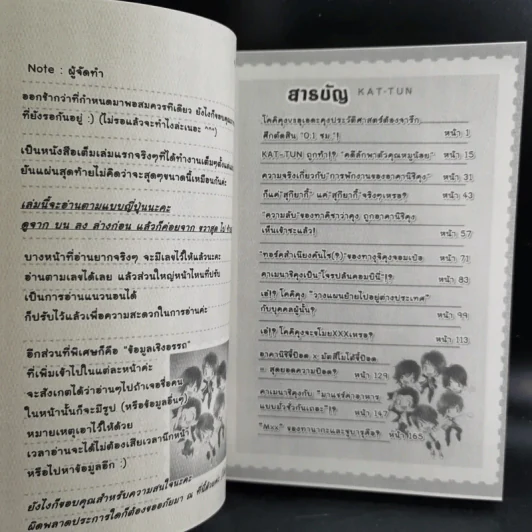 Note : ผู้จัดทำ
ออกช้ากว่าที่กำหนดมาพอสมควรทีเดียว ยังไงก็ขอบคุณ
ที่ยังรอกันอยู่ :) (ไม่รอแล้วจะทำไงล่ะเนอะ ^^)
เป็นหนังสือเต็มเล่มแรกจริงๆที่ได้ทำงานเต็มๆตั้งแต่
ยันแผ่นสุดท้ายไม่คิดว่าจะสุดๆขนาดนี้เหมือนกันค่ะ
เล่มนี้จะอ่านตามแบบญี่ปุ่นนะคะ
ดูจาก บน ลง ล่างก่อน แล้วก็ค่อยจาก ขวาสุด ไป
บางหน้าที่อ่านยากจริงๆ จะมีเลขไว้ให้แล้วนะคะ
อ่านตามเลขได้เลย แล้วส่วนใหญ่หน้าไหนที่ปรับ
เป็นการอ่านแนวนอนได้
ก็ปรับไว้แล้วเพื่อความสะดวกในการอ่านค่ะ
อีกส่วนที่พิเศษก็คือ "ข้อมูลเชิงอรรถ"
ที่เพิ่มเข้าไปในแต่ละหน้าค่ะ
จะสังเกตได้ว่าอ่านๆไปถ้าเจอชื่อคน
ในหน้านั้นก็จะมีรูป (หรือข้อมูลอื่นๆ)
หมายเหตุเอาไว้ให้ด้วย
เวลาอ่านจะได้ไม่ต้องเสียเวลานึกหน้า
หรือไปหาข้อมูลอีก :)
ยังไงก็ขอบคุณสำหรับความสนใจนะคะ
ผิดพลาดประการใดก็ต้องขออภัยมา ณ ที่นี้ด้วย
สารบัญ KAT-TUN
โคคิคุงเจอเดอะคุงประวัติศาสตร์ต้องจารึก
ศึกตัดสิน "0.1 ซม."! หน้า 1
KAT-TUN ถูกทำ!? "คดีลักพาตัวคุณหนูน้อย" หน้า 15
ความจริงเกี่ยวกับ "การพักงานของอาคานิชิคุง" หน้า 31
ที่แค่"สุกียากี้" แค่"สุกียากี้"จริงๆเหรอ? หน้า 43
"ความลับ"ของทาคิซาว่าคุง ถูกอาคานิชิคุง
เห็นเข้าซะแล้ว! หน้า 57
"ทอร์คสำเนียงคันไซ(?)"ของทางูจิคุงจอมเป๋อ หน้า 71
คาเมนาชิคุงเป็น"โจรปล้นคอมบินี"!? หน้า 83
เอ๋!? โคคิคุง "วางแผนย้ายไปอยู่ต่างประเทศ"
กับบุคคลผู้นั้น? หน้า 99
เอ๋!? โคคิคุงขโมยXXXเหรอ? หน้า 113
อาคานิชิช็อค x มัตสึโมโต้ช็อค
= สุดยอดความช็อค? หน้า 129
คาเมนาชิคุงกับ "มาแรร์คาอาหาร
แบบมั่วชัวกันเถอะ"!? หน้า 147
"Mxx" ของทานากะและซูบารุคือ? หน้า 165